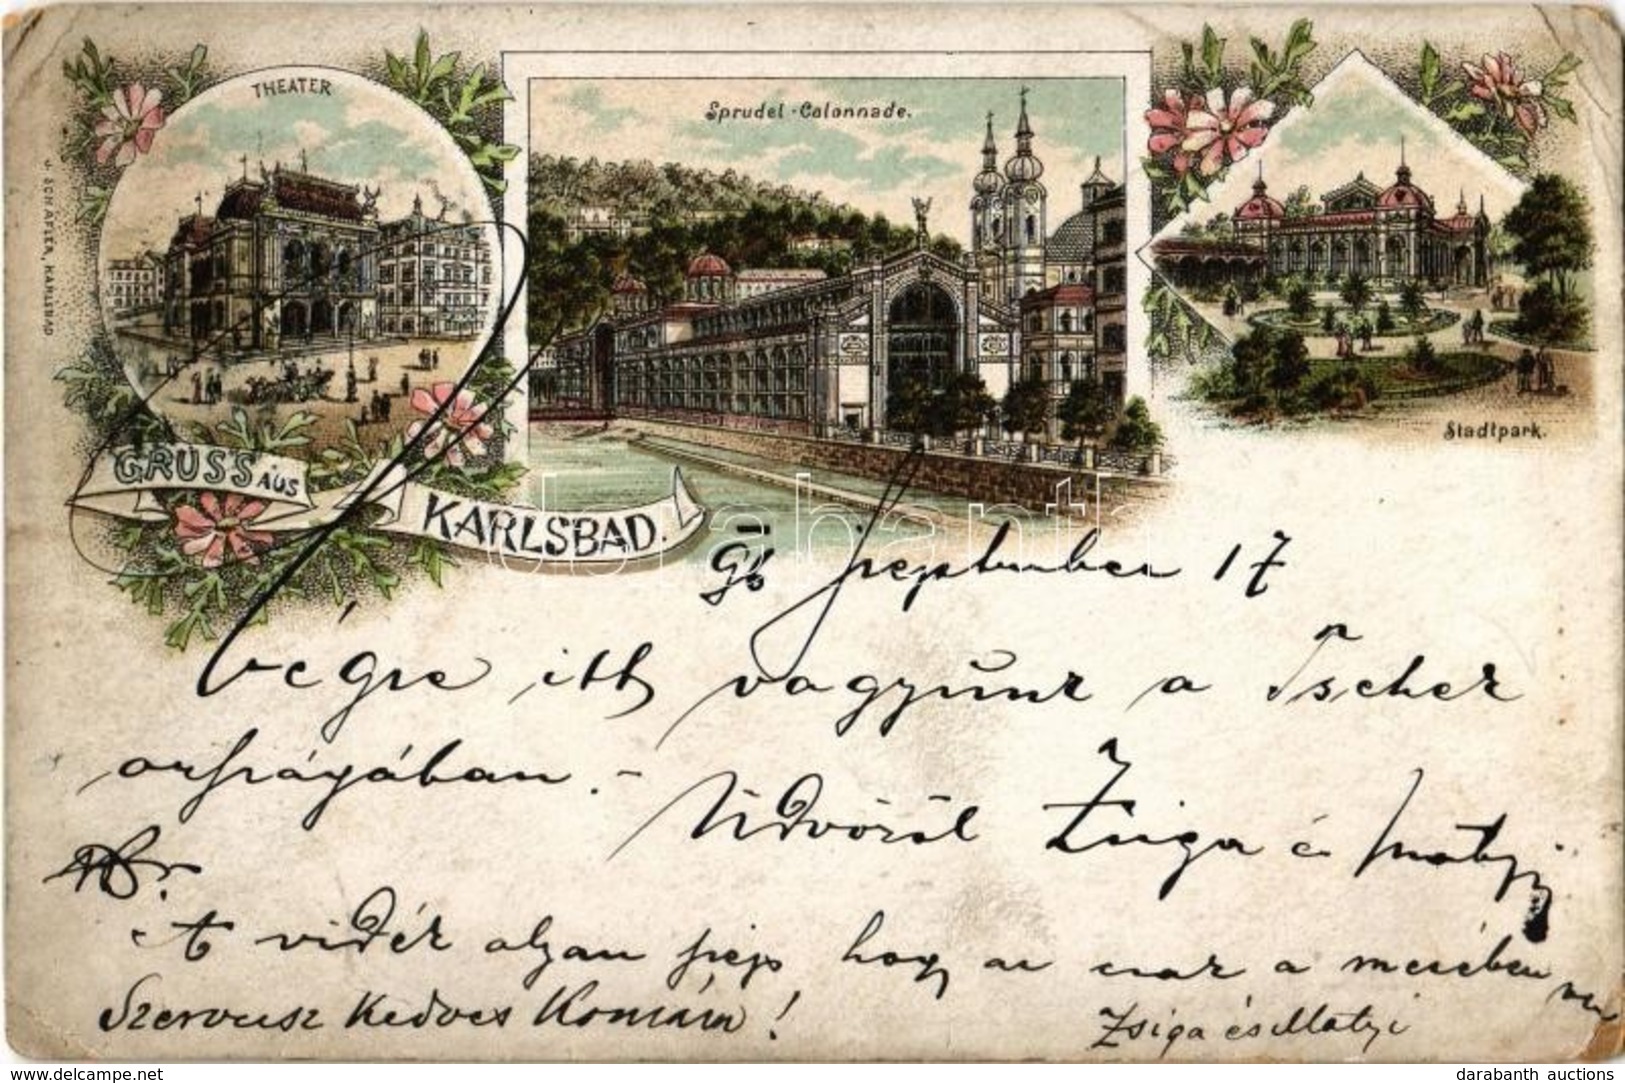 THEATER
Sprudel-Colonnade.
Stadtpark.
J. SCHÄFLER, KARLSBAD
GRUSS AUS
KARLSBAD.
darabanth
96 September 17
Végre itt vagyunk a Tschek
országában. -
Üdvözöl Zsiga és Matyi
A vidék olyan szép hogy az csak a mesében van
Szervusz Kedves Komám!
Zsiga és Matyi
www.delcampe.net
darabanth auctions